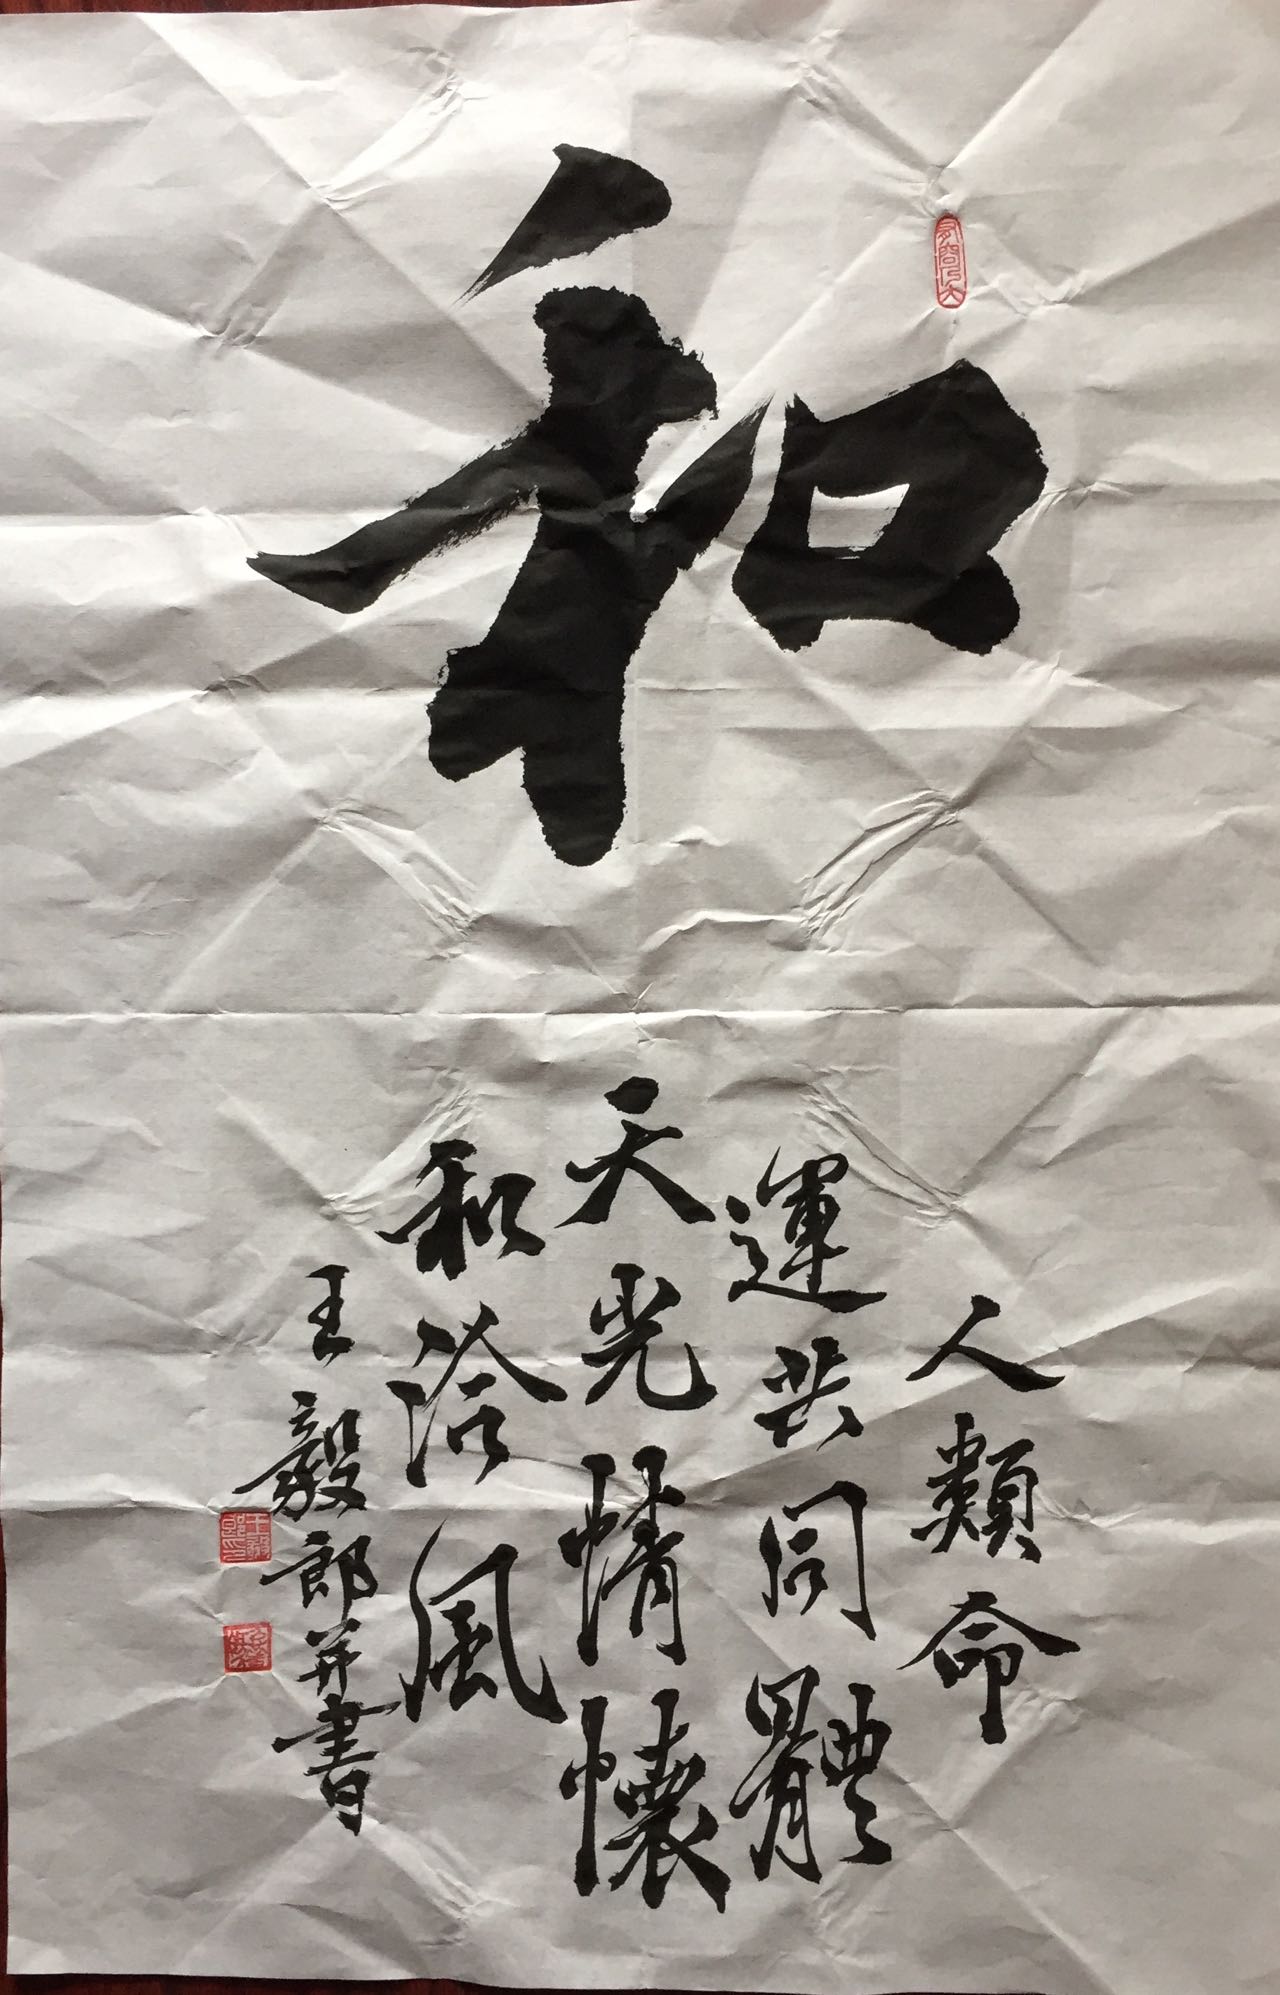 和
人類命
運共同體
天光情懷
和洽風
王毅郎并書
王毅郎印